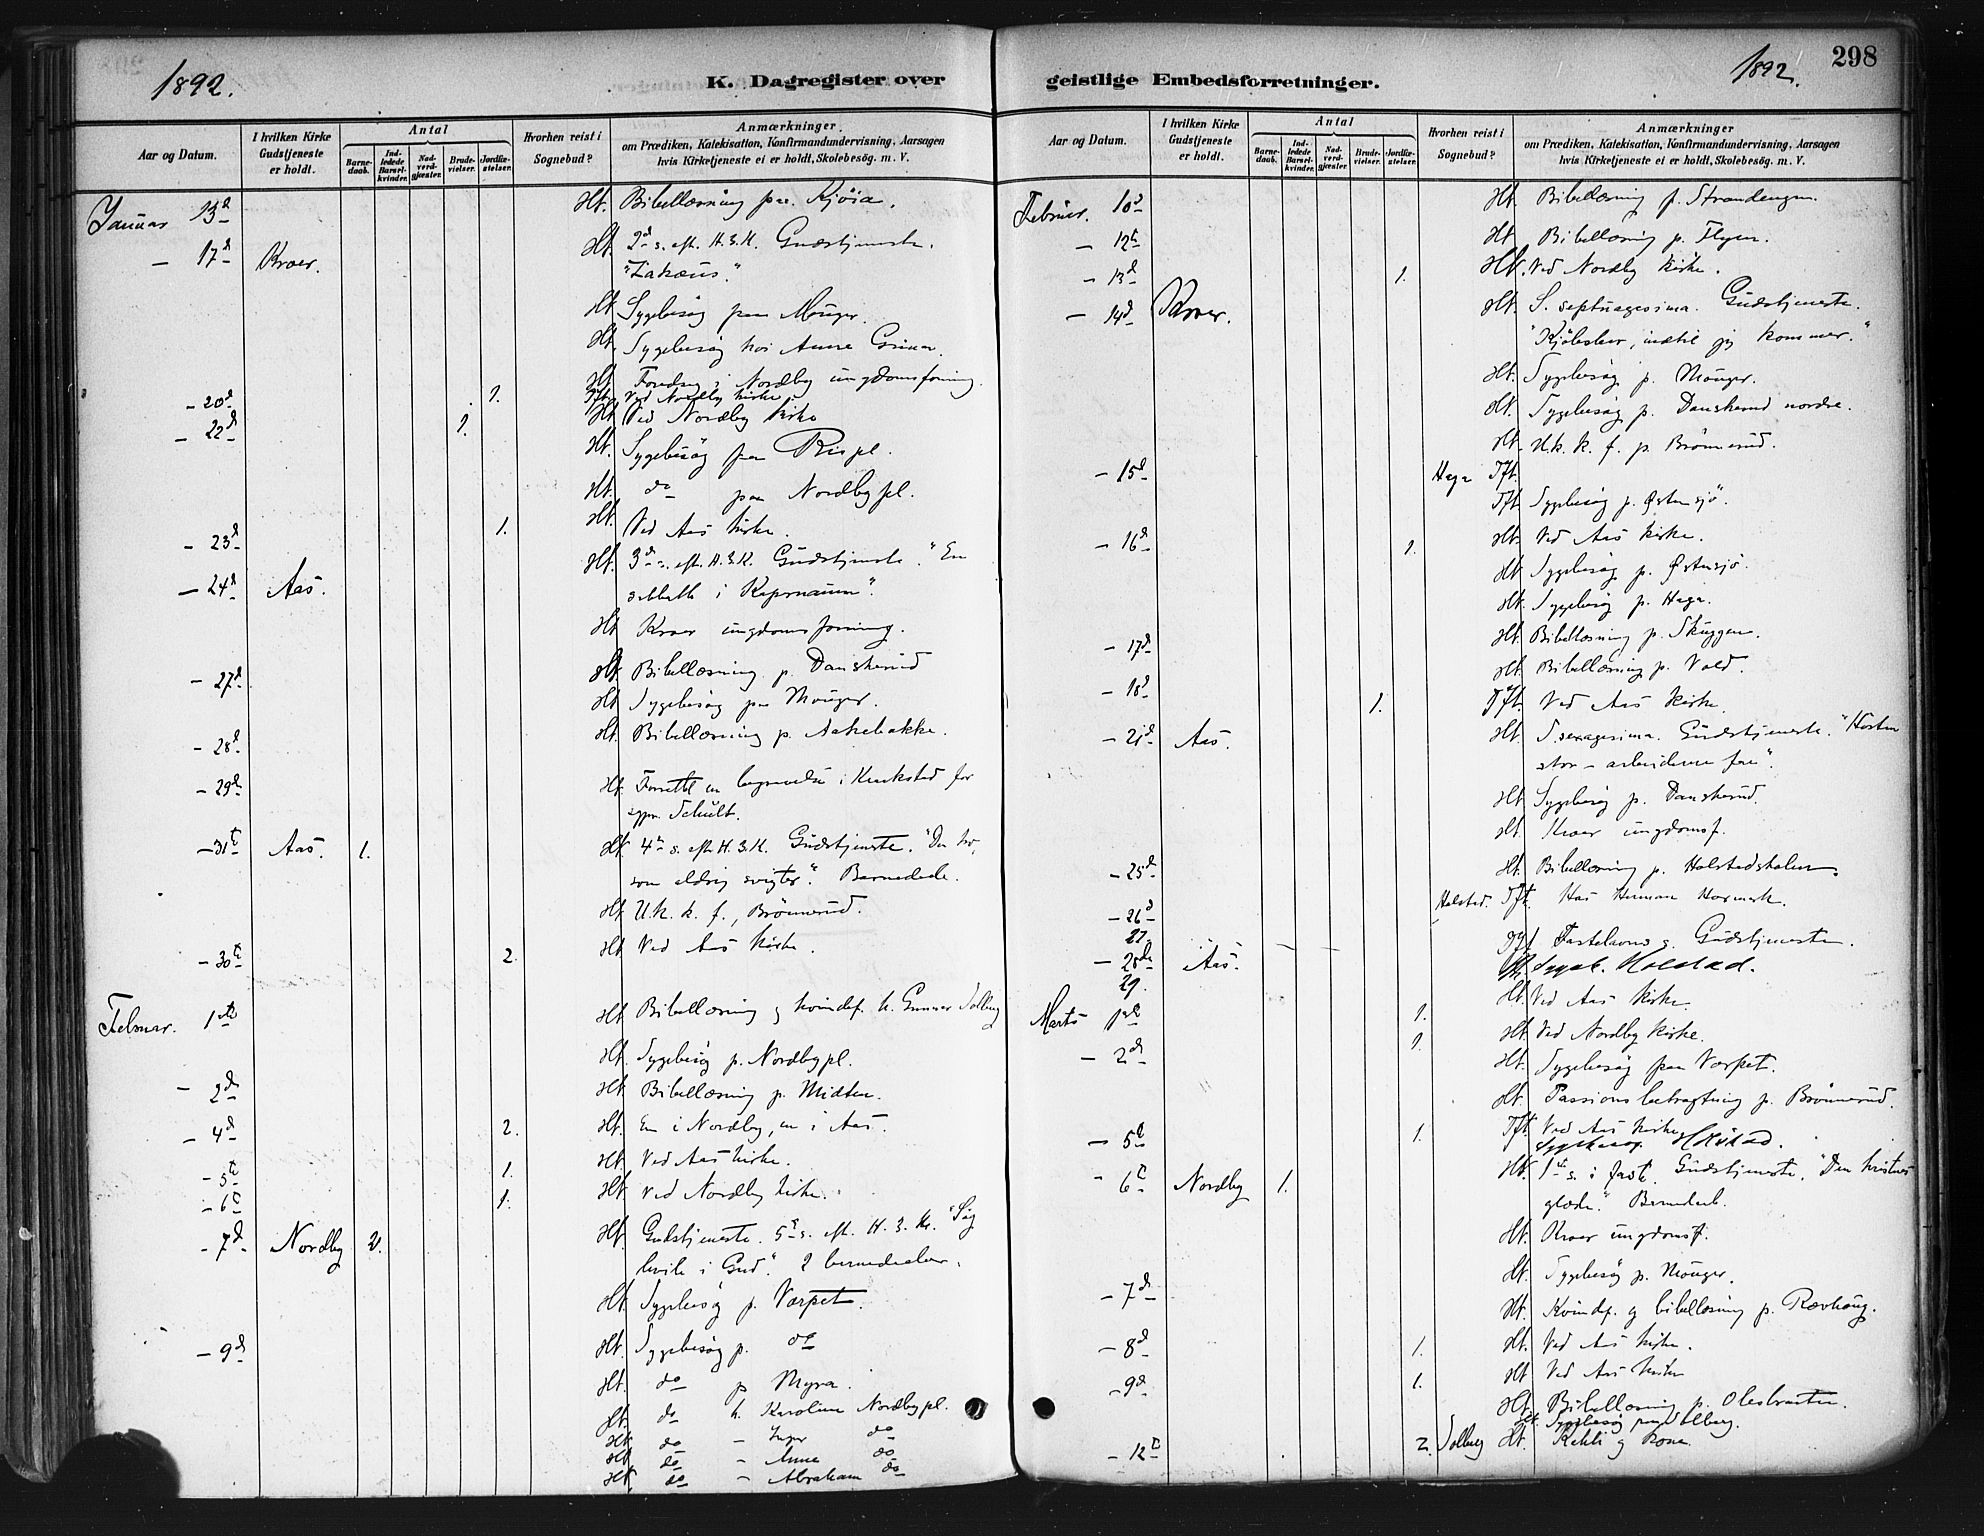 1892.
K. Dagregister over
Aar og Datum.
I hvilken Kirke Gudstjeneste er holdt.
Antal
Barnedaab.
Indledede Barselkvinder.
Nadverdgjæster.
Brudevielser.
Jordfæstelser.
Hvorhen reist i Sognebud?
Anmærkninger
om Prædiken, Katekisation, Konfirmandundervisning, Aarsagen
hvis Kirketjeneste ei er holdt, Skolebesøg. m. V.
Januar 13d Ht. Bibellæsning paa Kjøia.
- 17d Kroer. Ht. 2d s. eft. H.3.K. Gudstjeneste.
"Zakæus."
Ht. Sygebesøg paa Monger.
Ht. Sygebesøg hos Anne
Ht. Foredrag i Nordby ungdomsforening.
- 20d 1. Tft. Ved Nordby kirke
- 22d 1. Ht. Ved Nordby kirke
Ht. Sygebesøg paa Rispl.
Ht. do paa Nordbypl.
- 23d 1. Ht. Ved Aas kirke.
- 24d Aas. Ht. 3d s. eft. H.3.K. Gudstjeneste. "En
sabbath i Kapernaum".
Ht. Kroer ungdomsforening.
- 27d Ht. Bibellæsning p. Danskerud
Ht. Sygebesøg paa Monger.
- 28d Ht. Bibellæsning p. Askebakke.
- 29d Ht. Forrettet en begravelse i Kraakstad for
sgpr. Schult.
- 31te Aas. 1. Ht. 4de s. eft. H.3.K. Gudstjeneste. "Den tro,
som aldrig svigter." Barnedaab.
Ht. U.k.k.f., Brönnerud.
- 30te 2. Ht. Ved Aas kirke.
Februar. 1ste Ht. Bibellæsning og kvindef. h. Gunnar Solberg
Ht. Sygebesøg p. Nordbypl.
- 2d Ht. Bibellæsning p. Midten.
- 4d 2. Ht. En i Nordby, en i Aas.
- 5te 1. Ht. Ved Aas kirke.
- 6te 1. Ht. Ved Nordby kirke.
- 7d Nordby 2. Ht. Gudstjeneste. 5te s. eft. H.3.K. "Søg
hvile i Gud". 2 barnedaaber.
Ht. Sygebesøg p. Varpet.
- 9d Ht. Sygebesøg p. do
Ht. do p. Myra.
Ht. do h. Karoline Nordbypl.
Ht. do - Inger do
Ht. do - Anna do
Ht. do - Abraham do
1892. 298
geistlige Embedsforretninger.
Aar og Datum.
I hvilken Kirke Gudstjeneste er holdt.
Antal
Barnedaab.
Indledede Barselkvinder.
Nadverdgjæster.
Brudevielser.
Jordfæstelser.
Hvorhen reist i Sognebud?
Anmærkninger
om Prædiken, Katekisation, Konfirmandundervisning, Aarsagen
hvis Kirketjeneste ei er holdt, Skolebesøg. m. V.
Februar. 10d Ht. Bibellæsning p. Strandengen.
- 12te Ht. Bibellæsning p. Flyen.
- 13d 1. Ht. Ved Nordby kirke.
- 14d Kroer. Ht. S. septuagesima. Gudstjeneste.
"Kjøbslaar, indtil jeg kommer."
Ht. Sygebesøg p. Monger.
Ht. Sygebesøg p. Danskerud nordre.
Ht. U.k.k.f. p. Brönnerud.
- 15d Haga Tft.
Tft. Sygebesøg p. Østensjö.
- 16d 1. Ht. Ved Aas kirke.
Ht. Sygebesøg p. Østensjö.
Ht. Sygebesøg p. Haga.
- 17d Ht. Bibellæsning p. Skuggen.
Ht. Bibellæsning p. Vold.
- 18d 1. Tft. Ved Aas kirke.
- 21d Aas. Ht. S. sexagesima. Gudstjeneste. "Høsten
stor - arbeiderne faa".
Ht. Sygebesøg p. Danskerud.
Ht. Kroer ungdomsf.
- 25d Ht. Bibellæsning p. Holstadskolen.
- 26d Holstad. Tft. Hos Herman
27
- 28de Aas. Tft. Fastelavns s. Gudstjeneste.
29. Sygeb. Holstad.
Marts 1ste 1. Ht. Ved Aas kirke.
- 2de 1. Ht. Ved Nordby kirke.
Ht. Sygebesøg paa Varpet.
Ht. Passionsbetragtning p. Brönnerud.
- 5te 1. Tft. Ved Aas kirke
Sygebesøg Holstad.
- 6te Nordby 1. Ht. 1ste s. i faste. Gudstjeneste. "Den kristnes
glæde." Barnedaab.
Ht. Kroer ungdomsf.
Ht. Sygebesøg p. Monger.
- 7de Ht. Kvindf. og bibellæsning p. Rævhaug.
- 8d 1. Ht. Ved Aas kirke.
- 9d 1. Ht. Ved Aas kirke
Ht. Bibellæsning p. Olesbraaten.
Ht. Sygebesøg paa Solberg.
- 12te 2. Solberg Ht. Kahli og kone.